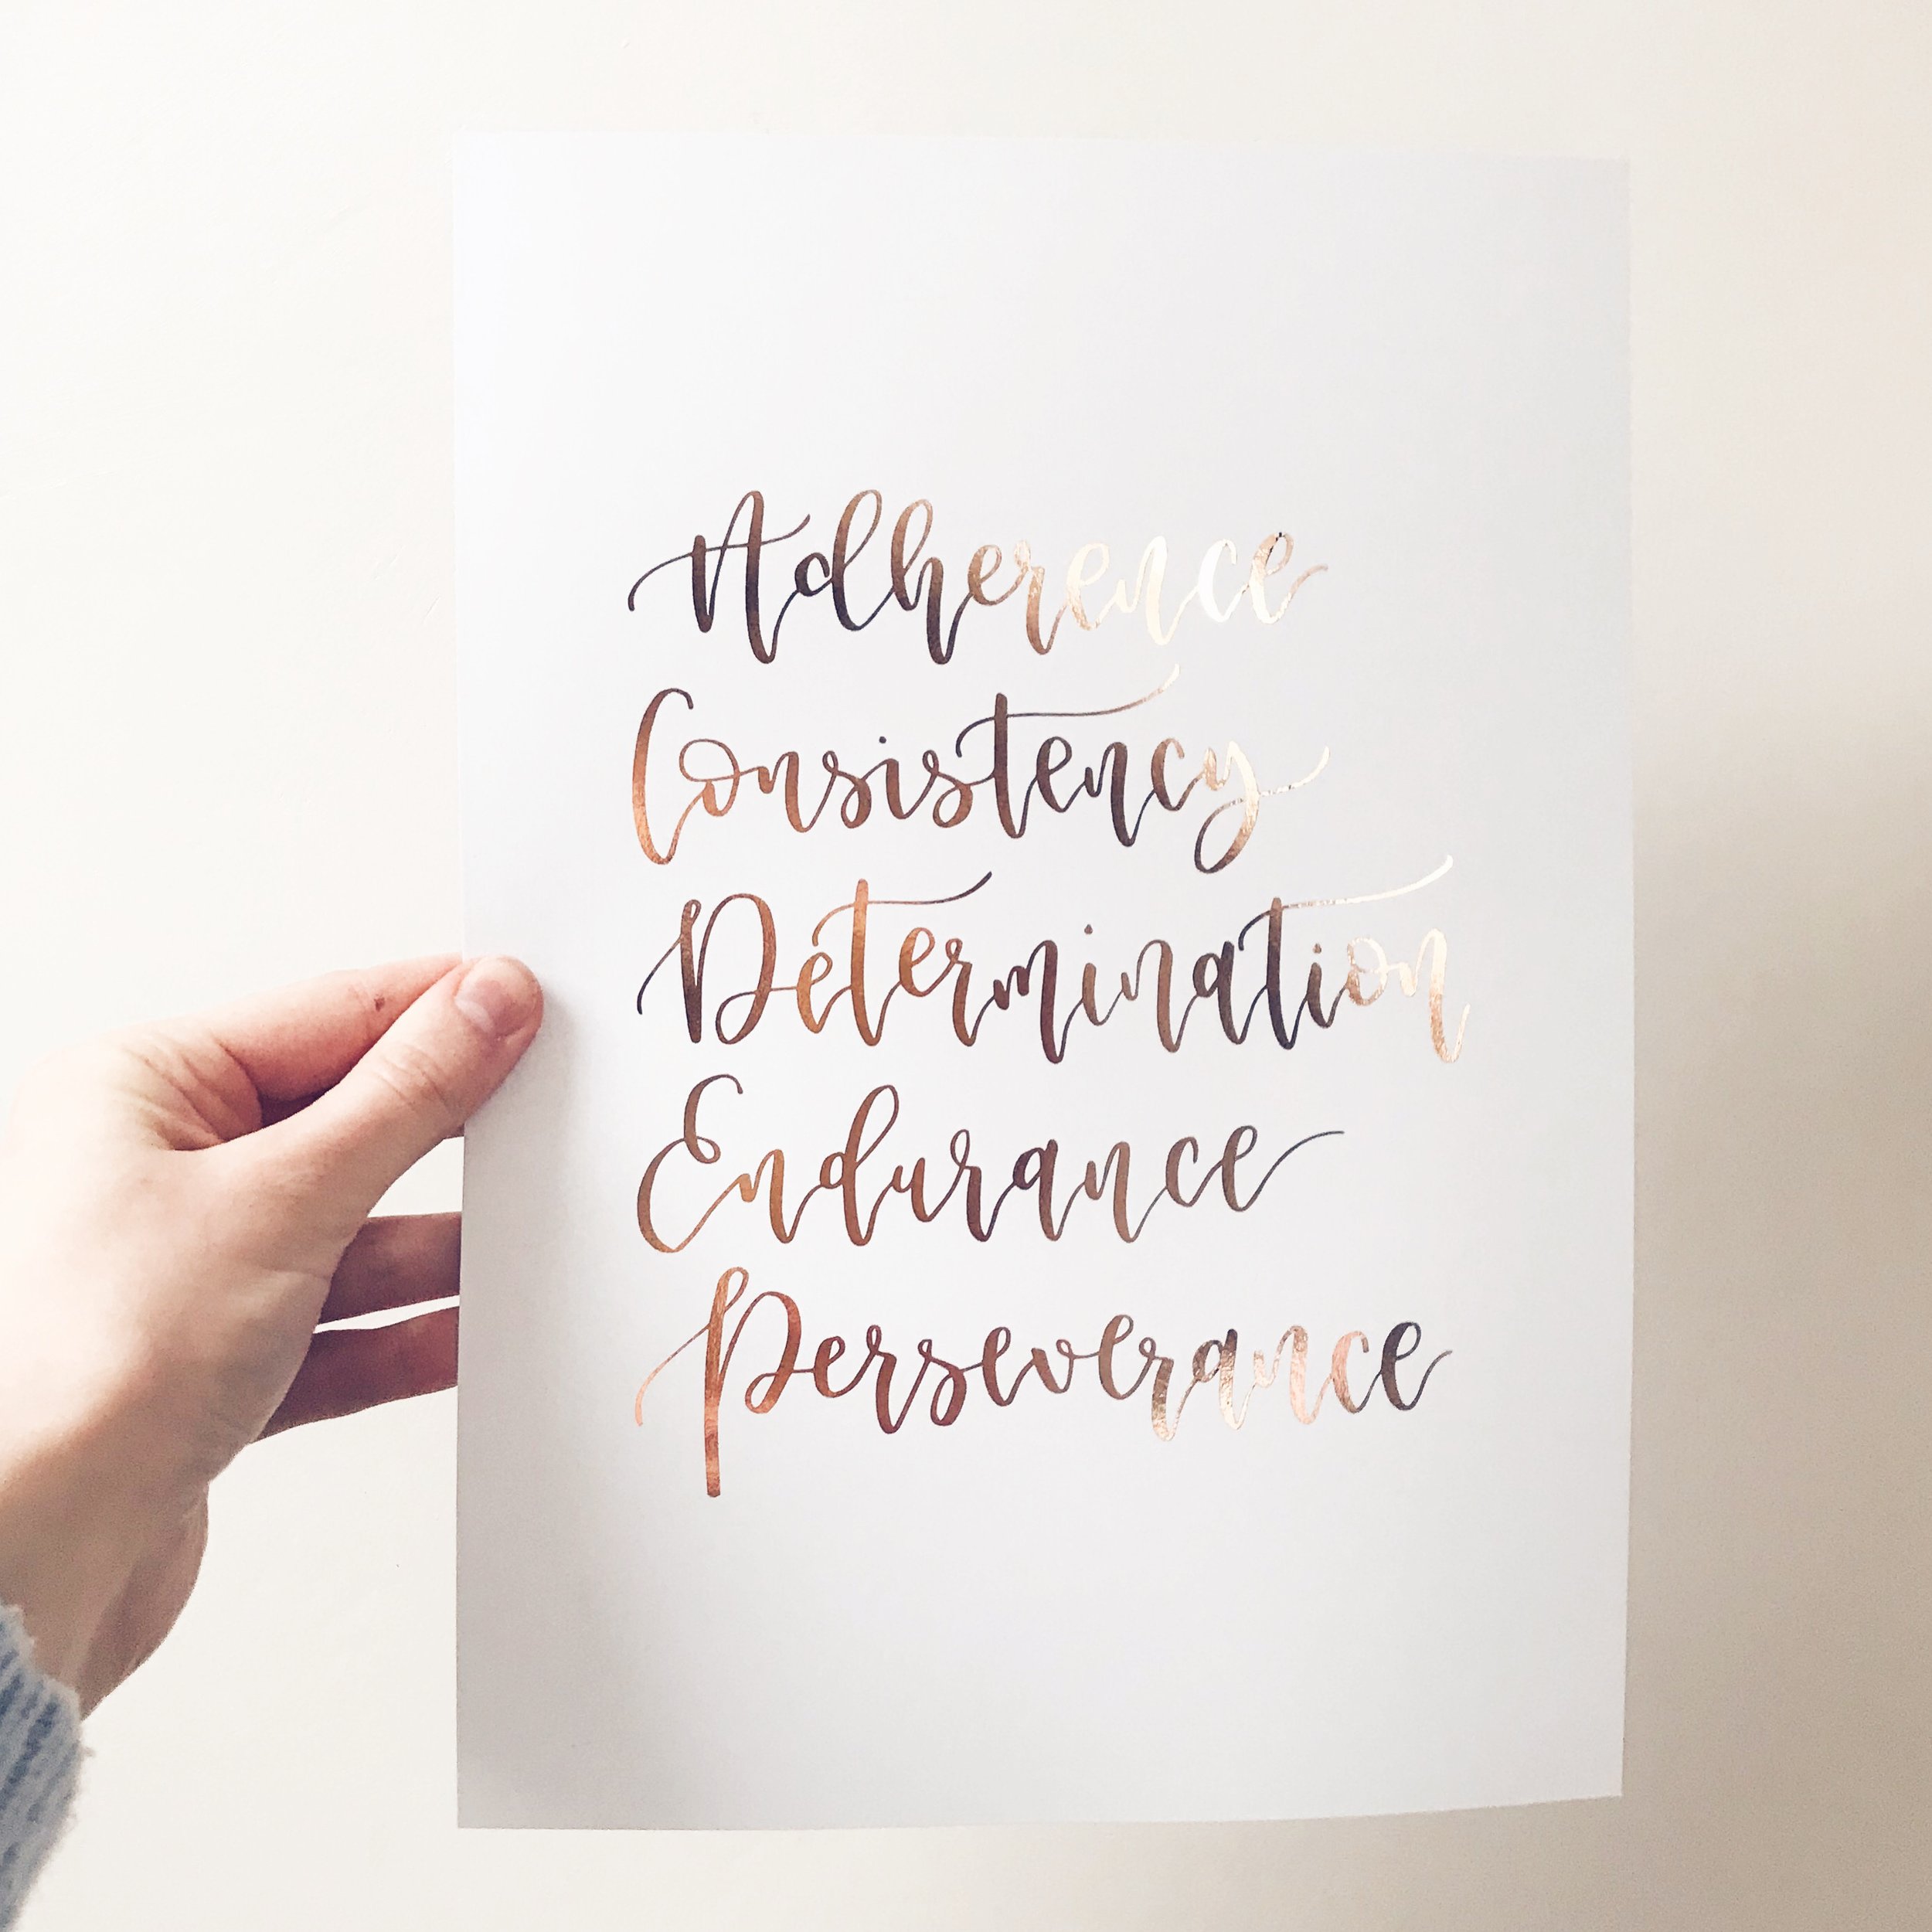 Adherence
Consistency
Determination
Endurance
Perseverance